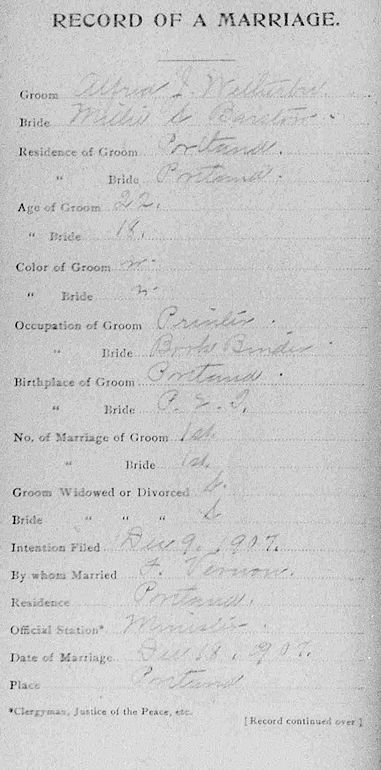 RECORD OF A MARRIAGE.
Groom Alfred
Bride Barstow
Residence of Groom Portland.
" Bride Portland.
Age of Groom 22.
" Bride 18.
Color of Groom w
" Bride w
Occupation of Groom Printer
" Bride Book Binder
Birthplace of Groom Portland
" Bride P. E. I.
No. of Marriage of Groom 1st
" Bride 1st
Groom Widowed or Divorced S.
Bride " " " S
Intention Filed Dec 9, 1907.
By whom Married F. Vernon.
Residence Portland.
Official Station* Minister.
Date of Marriage Dec 18, 1907.
Place Portland
*Clergyman, Justice of the Peace, etc.
[Record continued over]